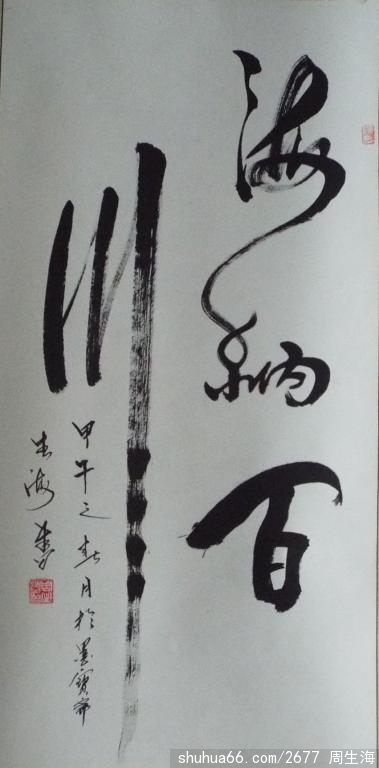 海纳百
川
甲午之春月於墨宝斋
生海书
shuhua66.com/2677 周生海